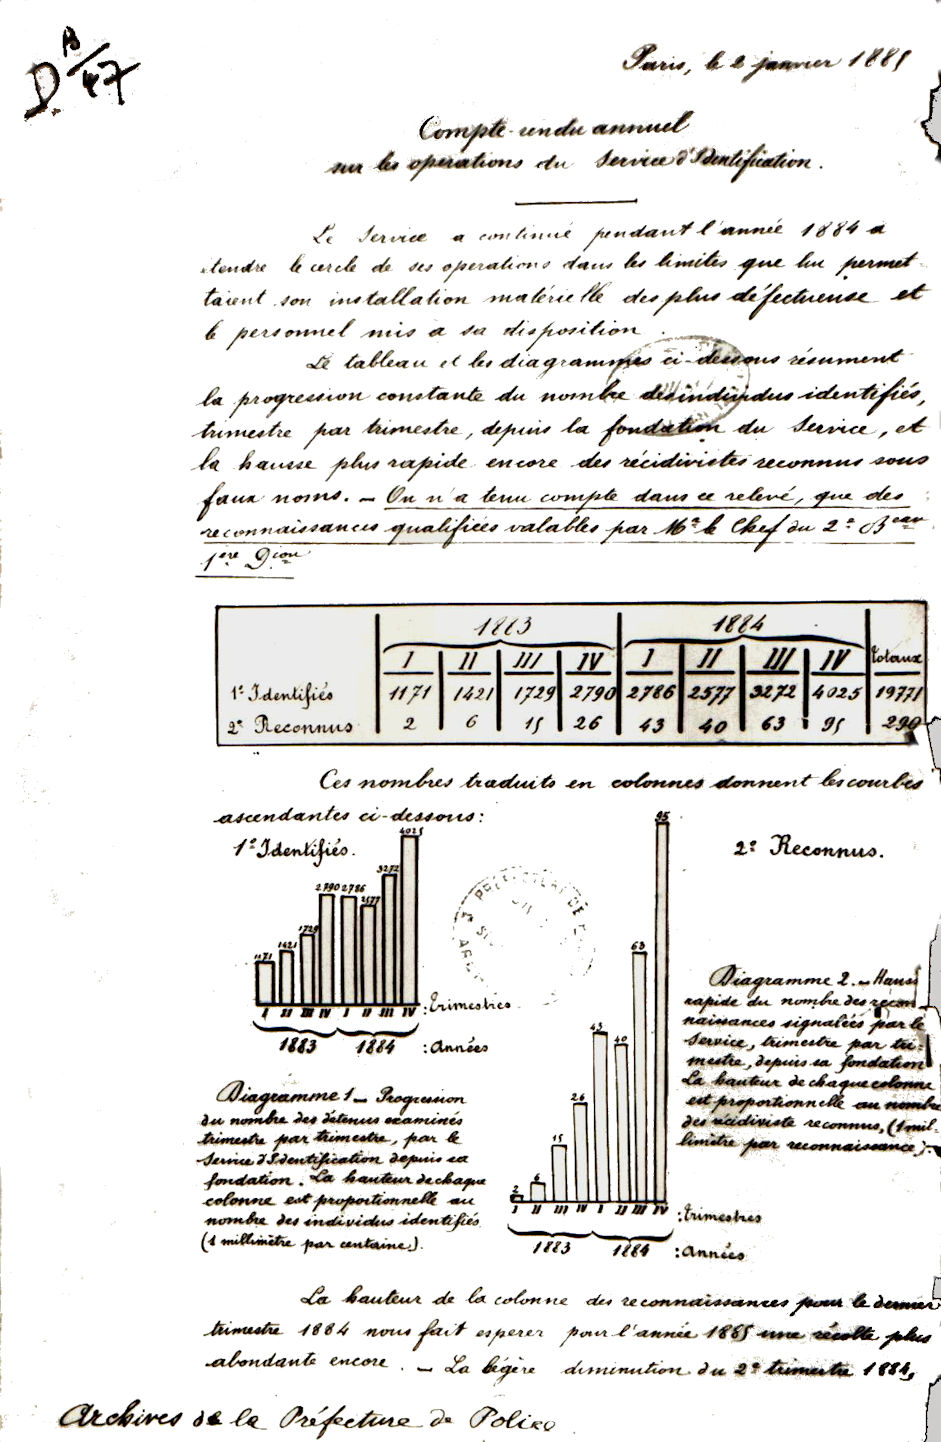 D. B/47
Paris, le 2 janvier 1885
Compte-rendu annuel
sur les operations du Service d'Identification.
Le Service a continué pendant l'année 1884 a
étendre le cercle de ses operations dans les limites que lui permet-
taient son installation matérielle des plus défectueuse et
le personnel mis a sa disposition.
Le tableau et les diagrammes ci-dessous résument
la progression constante du nombre des individus identifiés,
trimestre par trimestre, depuis la fondation du Service, et
la hausse plus rapide encore des récidivistes reconnus sous
faux noms. — On n'a tenu compte dans ce relevé, que des
reconnaissances qualifiées valables par Mr le Chef du 2e Beau
1ère Dion
1883 1884
I II III IV I II III IV Totaux
1º Identifiés 1171 1421 1729 2790 2786 2577 3272 4025 19771
2º Reconnus 2 6 15 26 43 40 63 95 290
Ces nombres traduits en colonnes donnent les courbes
ascendantes ci-dessous:
1º Identifiés.
1171 1421 1729 2790 2786 2577 3272 4025
I II III IV I II III IV : Trimestres
1883 1884 : Années
Diagramme 1 — Progression
du nombre des détenus examinés
trimestre par trimestre, par le
Service d'Identification depuis sa
fondation. La hauteur de chaque
colonne est proportionnelle au
nombre des individus identifiés
(1 millimètre par centaine.).
2º Reconnus.
2 6 15 26 43 40 63 95
I II III IV I II III IV : Trimestres
1883 1884 : Années
Diagramme 2. — Hausse
rapide du nombre des recon-
naissances signalées par le
Service, trimestre par tri-
mestre, depuis sa fondation
La hauteur de chaque colonne
est proportionnelle au nombre
des récidiviste reconnus, (1 mil-
limètre par reconnaissance.).
La hauteur de la colonne des reconnaissances pour le dernier
trimestre 1884 nous fait esperer pour l'année 1885 une récolte plus
abondante encore. — La légère diminution du 2e trimestre 1884,
Archives de la Préfecture de Police